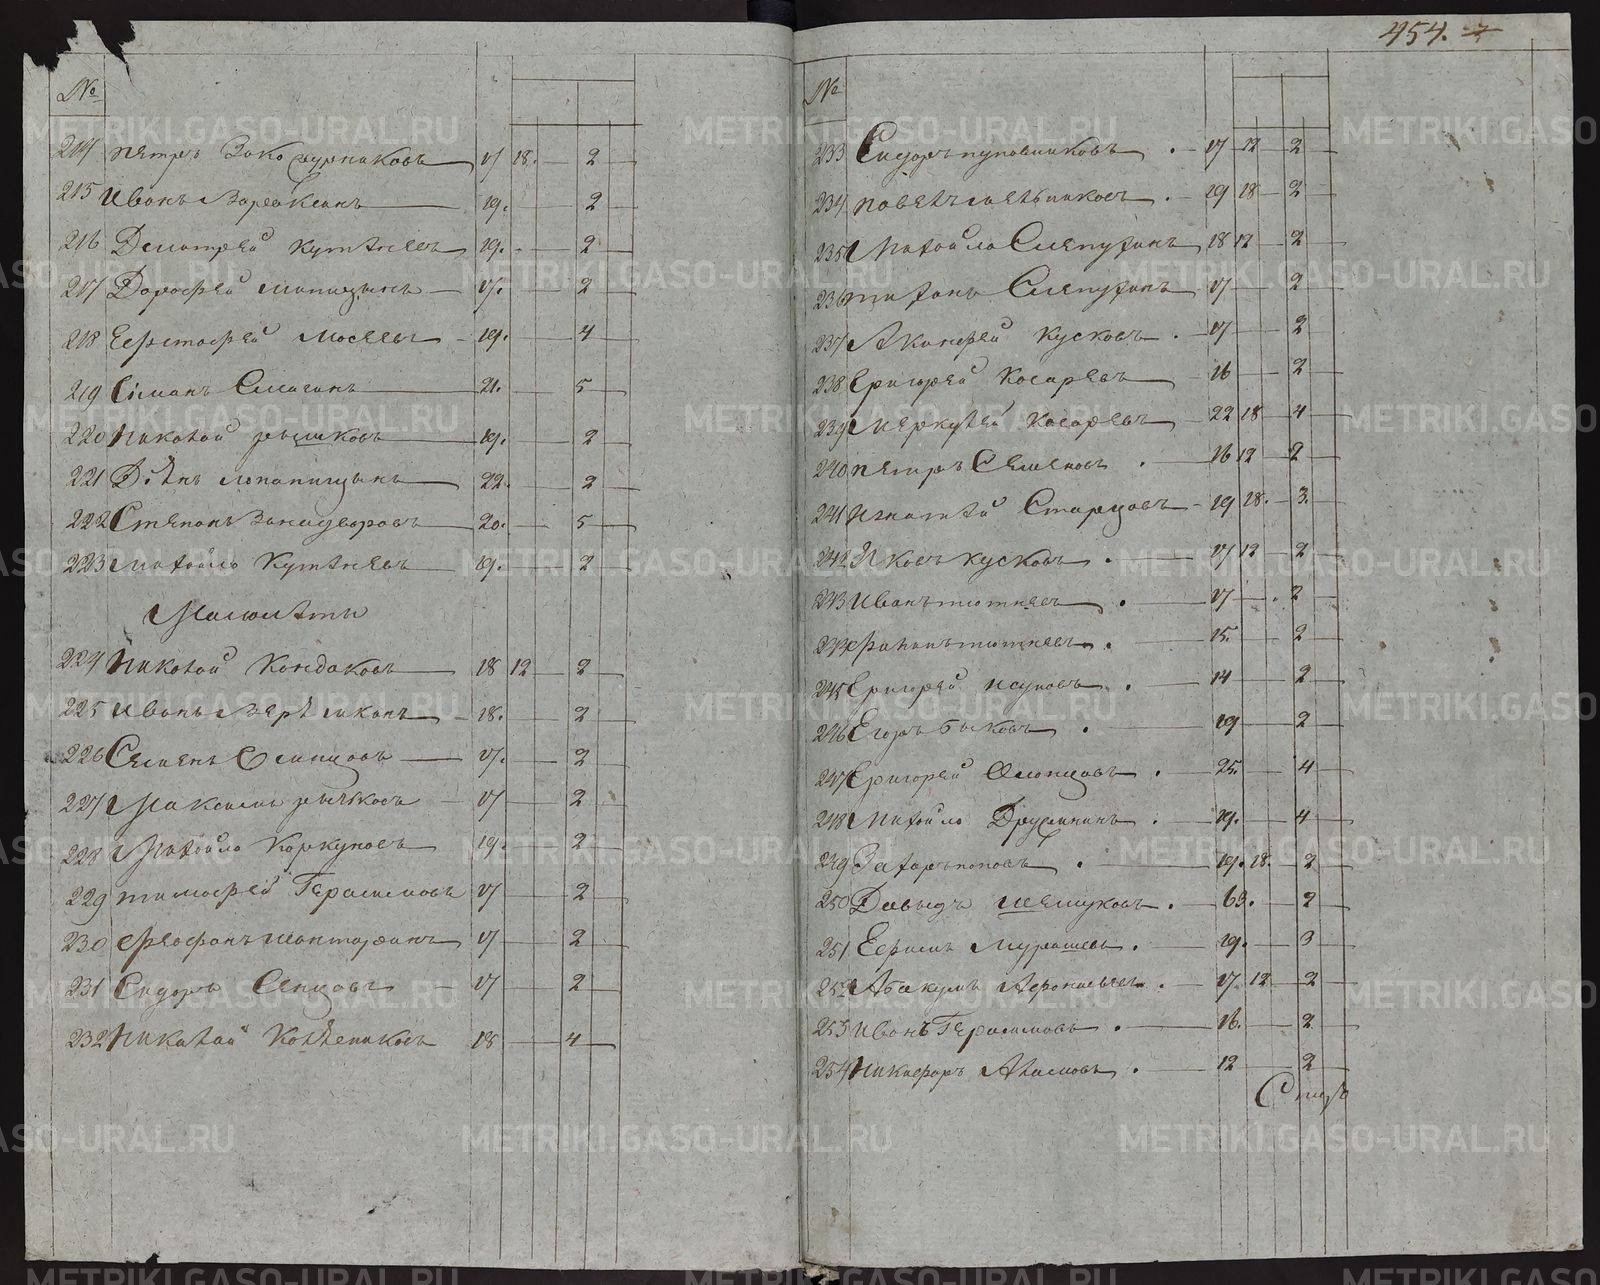 №
214 петръ Закожурниковъ 17 18. 2
215 Иванъ Варваксинъ 19. 2
216 Дмитрей Кутѣневъ 19. 2
217 Дорофей 17. 2
218 Евстафей Мосеевъ 19. 4
219 Симанъ Смагинъ 21. 5
220 Николай рышковъ 19. 2
221 22. 2
222 Степанъ Заколяоровъ 20. 5
223 Михайло Кутѣневъ 19. 2
Малолѣты
224 Николай Кондаковъ 18 12 2
225 Иванъ 18. 2
226 Семенъ 17. 2
227 Максимъ рычковъ 17 2
228 Михайло Коркуновъ 19. 2
229 тимофей Герасимовъ 17 2
230 Феофанъ 17 2
231 Сидоръ Сенцовъ 17 2
232 Николай Колѣсниковъ 18 4
454.
№
233 Сидоръ пуповниковъ 17 12 2
234 павелъ мельниковъ 19 18 2
235 Михайло Слепухинъ 18 12 2
236 тихонъ Слепухинъ 17 2
237 Кусковъ 17 2
238 Григорей Косаревъ 16 2
239 Меркулей Косаревъ 22 18 4
240 петръ Семеновъ 16 12 2
241 Игнатей Старцовъ 19 18. 3.
242 Яковъ кусковъ 17 12 2
243 Иванъ тютневъ 17 2
244 тютневъ 15. 2
245 Григорей исуповъ 14 2
246 Егоръ быковъ 19 2
247 Григорей Олонцовъ 25. 4
248 Михайло Дружининъ 19. 4
249 Захаръ поповъ 19. 18. 2
250 Давыдъ 63. 2
251 Ефимъ Мурашевъ 19. 3
252 Абакумъ 17. 12 2
253 Иванъ Герасимовъ 16. 2
254 Никифоръ 12 2